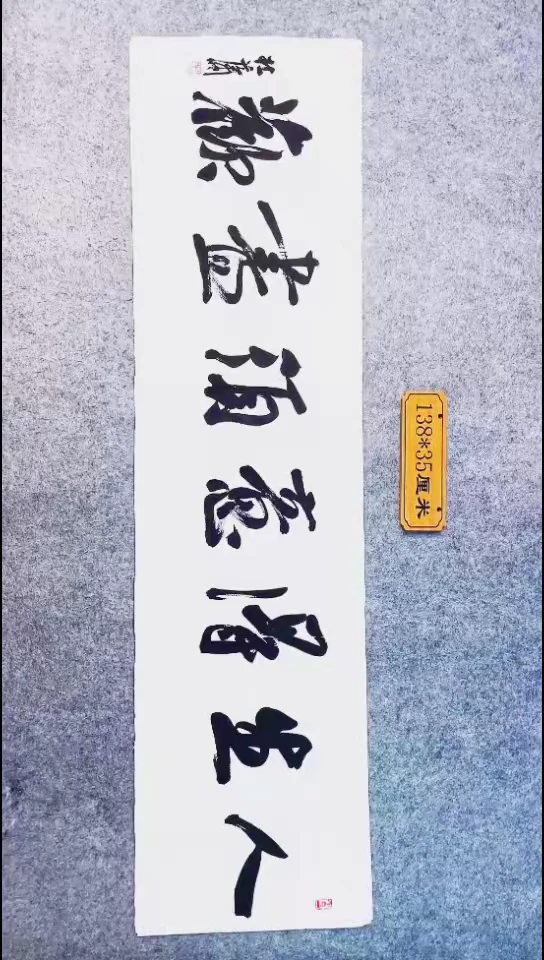 人生得意須盡歡
138*35厘米